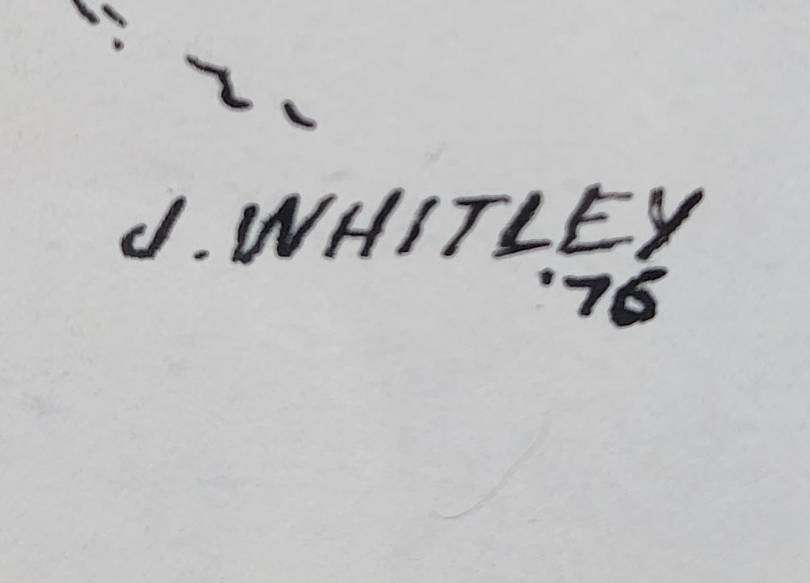 J. WHITLEY
'76